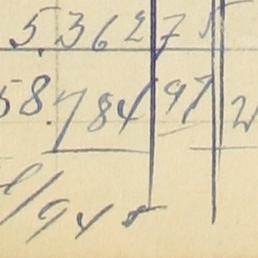 5.362 75
58.784 97
/945